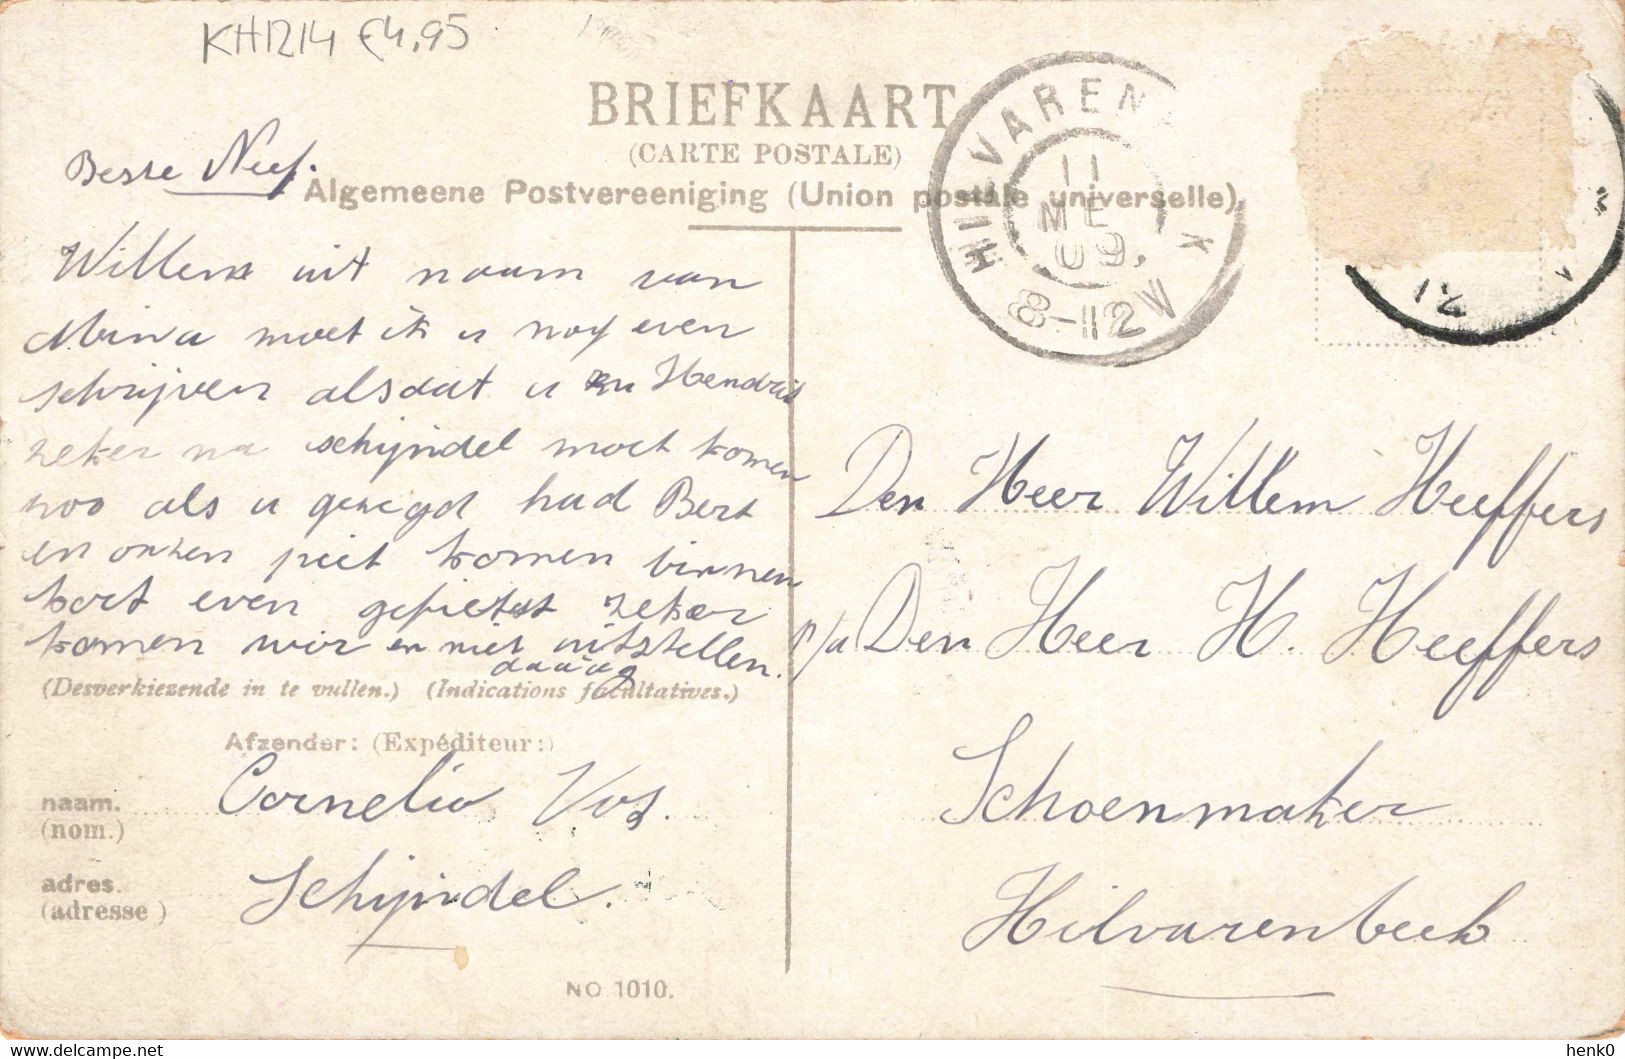 KH1214 €4,95
BRIEFKAART
(CARTE POSTALE)
Algemeene Postvereeniging (Union postale universelle)
HILVARENB K
11
ME
09.
8-12V
12
Beste Neef.
Willem uit naam van
Mina moet ik u nog even
schrijven alsdat u en Hendrik
zeker na schijndel moet komen
zoo als u gezegd had Bert
en onzen piet komen binnen
kort even gefietst zeker
komen wor en niet uitstellen.
daaag
(Desverkiezende in te vullen.) (Indications facultatives.)
Afzender: (Expéditeur:)
naam. Cornelia Vos.
(nom.)
adres. Schijndel.
(adresse)
NO 1010.
Den Heer Willem Heeffers
p/a Den Heer H. Heeffers
Schoenmaker
Hilvarenbeek
henk0